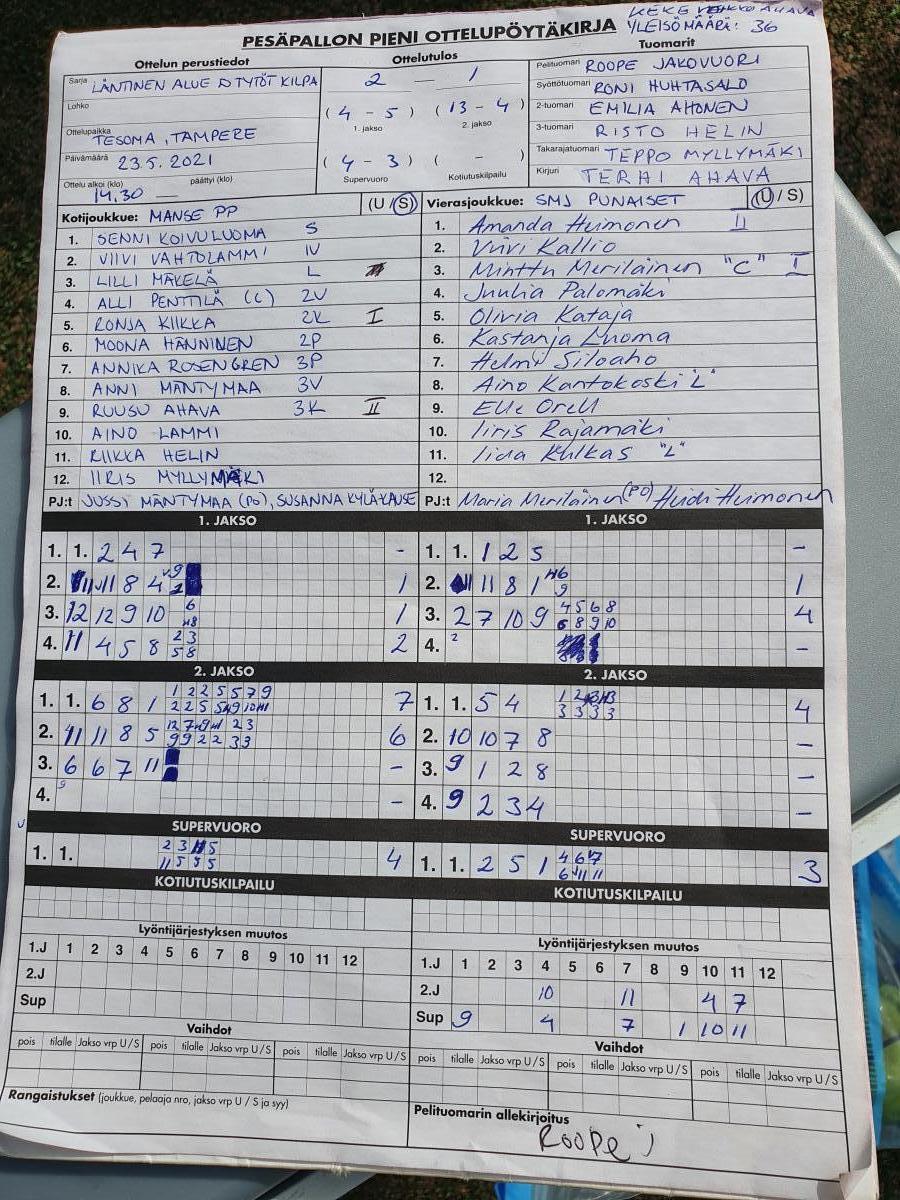 KEKE AHAVA
PESÄPALLON PIENI OTTELUPÖYTÄKIRJA
YLEISÖMÄÄRÄ: 36
Ottelun perustiedot
Ottelutulos
Tuomarit
Sarja LÄNTINEN ALUE D TYTÖT KILPA
2 — 1
Pelituomari ROOPE JAKOVUORI
Syöttötuomari RONI HUHTASALO
Lohko
(4 - 5) (13 - 4)
2-tuomari EMILIA AHONEN
1. jakso 2. jakso
Ottelupaikka TESOMA, TAMPERE
3-tuomari RISTO HELIN
Päivämäärä 23.5.2021
(4 - 3) ( - )
Takarajatuomari TEPPO MYLLYMÄKI
Supervuoro Kotiutuskilpailu
Kirjuri TERHI AHAVA
Ottelu alkoi (klo) 14.30 päättyi (klo)
Kotijoukkue: MANSE PP (U / S)
Vierasjoukkue: SMJ PUNAISET (U / S)
1. SENNI KOIVULUOMA S
1. Amanda Heimonen II
2. VIIVI VAHTOLAMMI IV
2. Viivi Kallio
3. LILLI MÄKELÄ L
3. Minttu Meriläinen "C" I
4. ALLI PENTTILÄ (C) 2V
4. Juulia Palomäki
5. RONJA KIIKKA 2K I
5. Olivia Kataja
6. MOONA HÄNNINEN 2P
6. Kastanja Luoma
7. ANNIKA ROSENGREN 3P
7. Helmi Siloaho
8. ANNI MÄNTYMAA 3V
8. Aino Kantokoski "L"
9. RUUSU AHAVA 3K II
9. Elle Orell
10. AINO LAMMI
10. Iiris Rajamäki
11. RIIKKA HELIN
11. Iida Kulkas "L"
12. IIRIS MYLLYMÄKI
12.
PJ:t JUSSI MÄNTYMAA (PO), SUSANNA KYLÄKAUSE
PJ:t Maria Meriläinen (PO) Heidi Heimonen
1. JAKSO
1. JAKSO
1. 1. 2 4 7 -
1. 1. 1 2 5 -
2. 11 8 4 1
2. 11 8 1 1
3. 12 12 9 10 1
3. 2 7 10 9 4 5 6 8 4
6 8 9 10
4. 11 4 5 8 2 3 2
5 8
4. 2 -
2. JAKSO
2. JAKSO
1. 1. 6 8 1 1 2 2 5 5 7 9 7
1. 1. 5 4 4
3 3 3 3
2. 11 11 8 5 6
9 9 2 2 3 3
2. 10 10 7 8 -
3. 6 6 7 11 -
3. 9 1 2 8 -
4. 9 -
4. 9 2 3 4 -
SUPERVUORO
SUPERVUORO
1. 1. 2 3 5 4
11 5 5 5
1. 1. 2 5 1 4 6 7 3
KOTIUTUSKILPAILU
KOTIUTUSKILPAILU
Lyöntijärjestyksen muutos
Lyöntijärjestyksen muutos
1.J 1 2 3 4 5 6 7 8 9 10 11 12
1.J 1 2 3 4 5 6 7 8 9 10 11 12
2.J
2.J 10 11 4 7
Sup
Sup 9 4 7 1 10 11
Vaihdot
Vaihdot
pois tilalle Jakso vrp U / S pois tilalle Jakso vrp U / S pois tilalle Jakso vrp U / S
pois tilalle Jakso vrp U / S pois tilalle Jakso vrp U / S pois tilalle Jakso vrp U / S
Rangaistukset (joukkue, pelaaja nro, jakso vrp U / S ja syy)
Pelituomarin allekirjoitus
Roope J